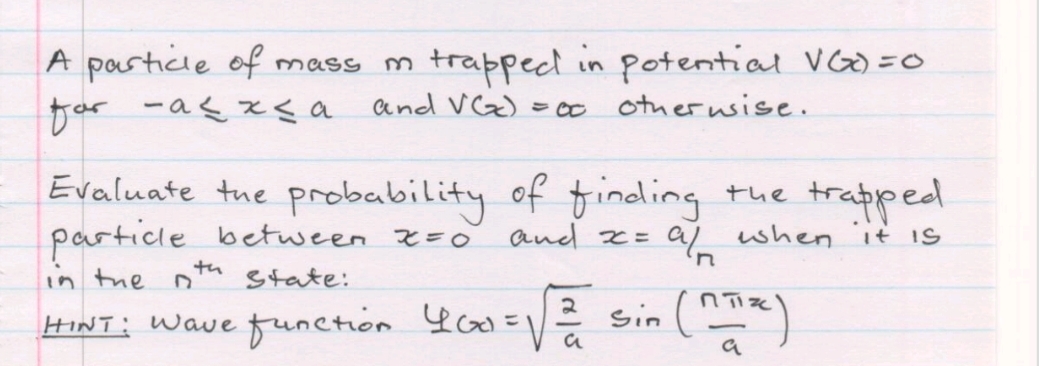 A particle of mass m trapped in potential V(x) = 0
for -a ≤ x ≤ a and V(x) = ∞ otherwise.
Evaluate the probability of finding the trapped
particle between x = 0 and x = a/n when it is
in the nth state:
HINT: Wave function Ψ(x) = √(2/a) sin (nπx/a)